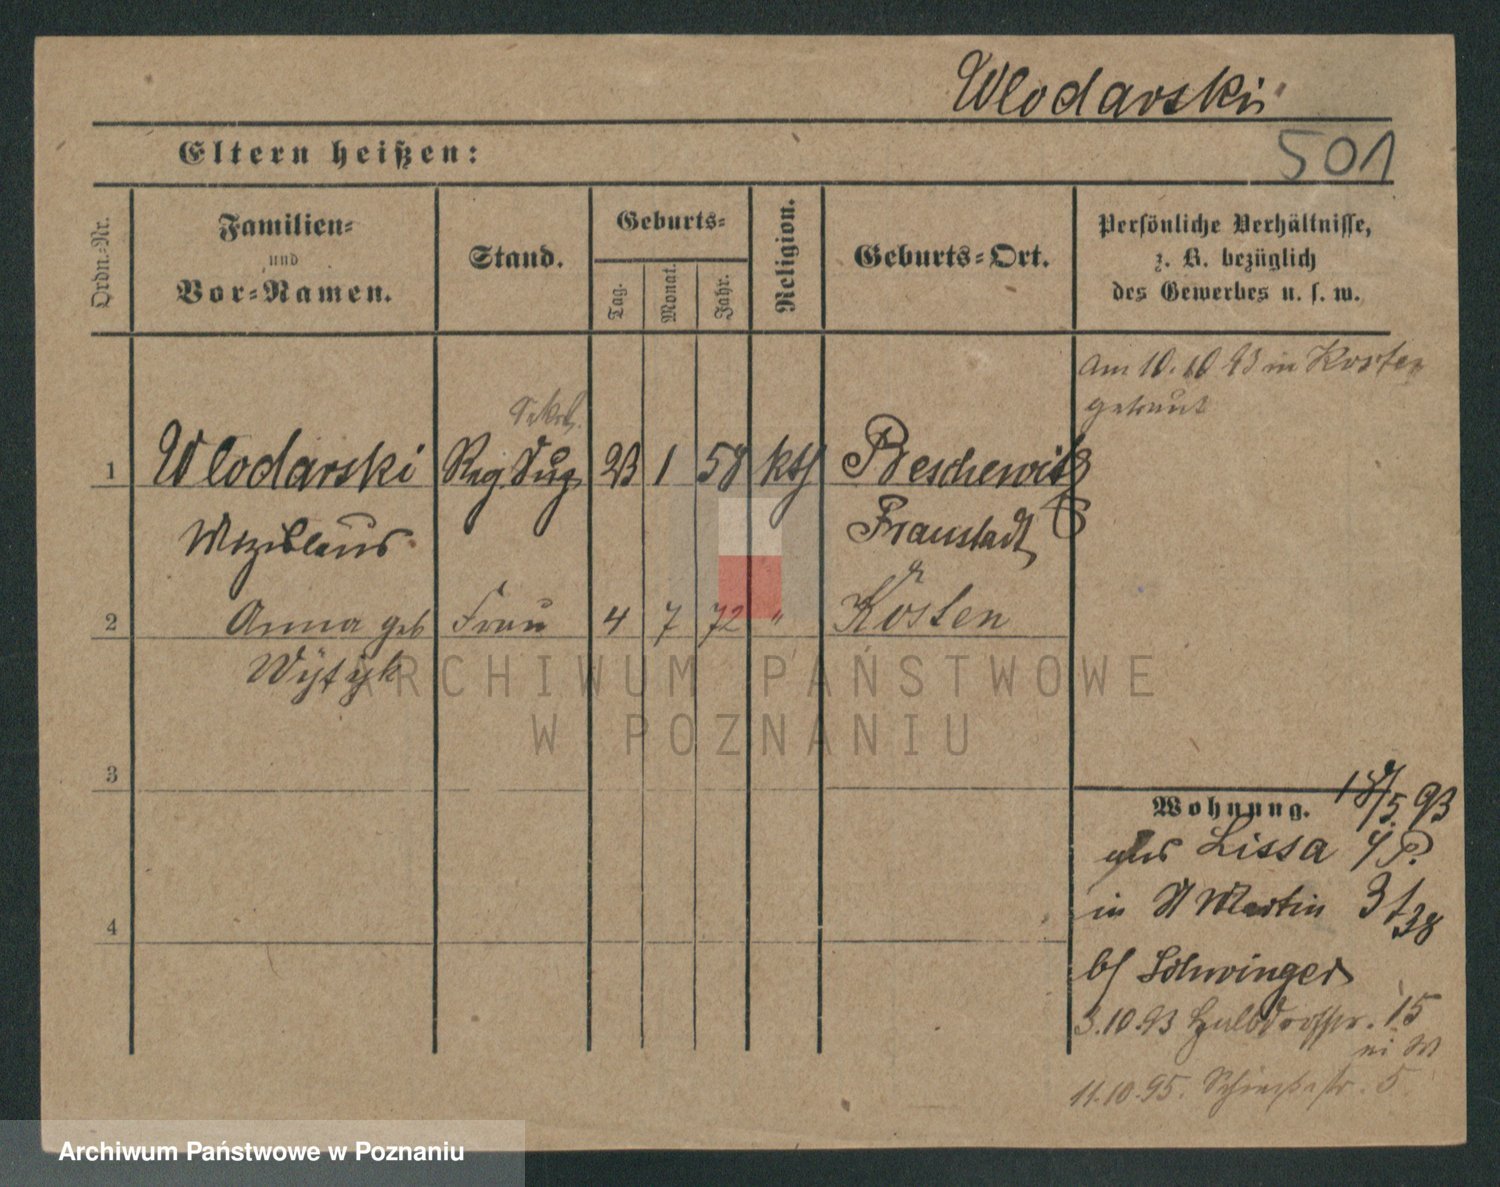 Wlodarski
Eltern heißen:
501
Ordn.-Nr.
Familien-
und
Vor-Namen.
Stand.
Geburts-
Tag.
Monat.
Jahr.
Religion.
Geburts-Ort.
Persönliche Verhältnisse,
z. B. bezüglich
des Gewerbes u. s. w.
am 10.10 93 in Kosten
getraut
1 Wlodarski Reg. 23 1 58 kth
Fraustadt
2 Anna geb Frau 4 7 72 " Kosten
3
4
Wohnung. 18/5. 93
aus Lissa
in St Martin 3/38
b/ Schwinger
3.10.93 15
11.10.95. 5
ARCHIWUM PAŃSTWOWE
W POZNANIU
Archiwum Państwowe w Poznaniu